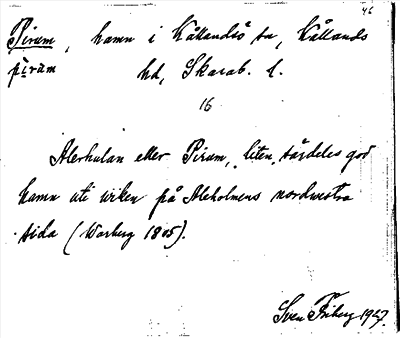 46
Piram, hamn i Kållandsö sn, Kållands
piram hd, Skarab. l.
16
Alerhulan eller Piram, liten, särdeles god
hamn uti wiken på Aleholmens nordwestra
sida (Warberg 1805).
Sven Friberg 1927.